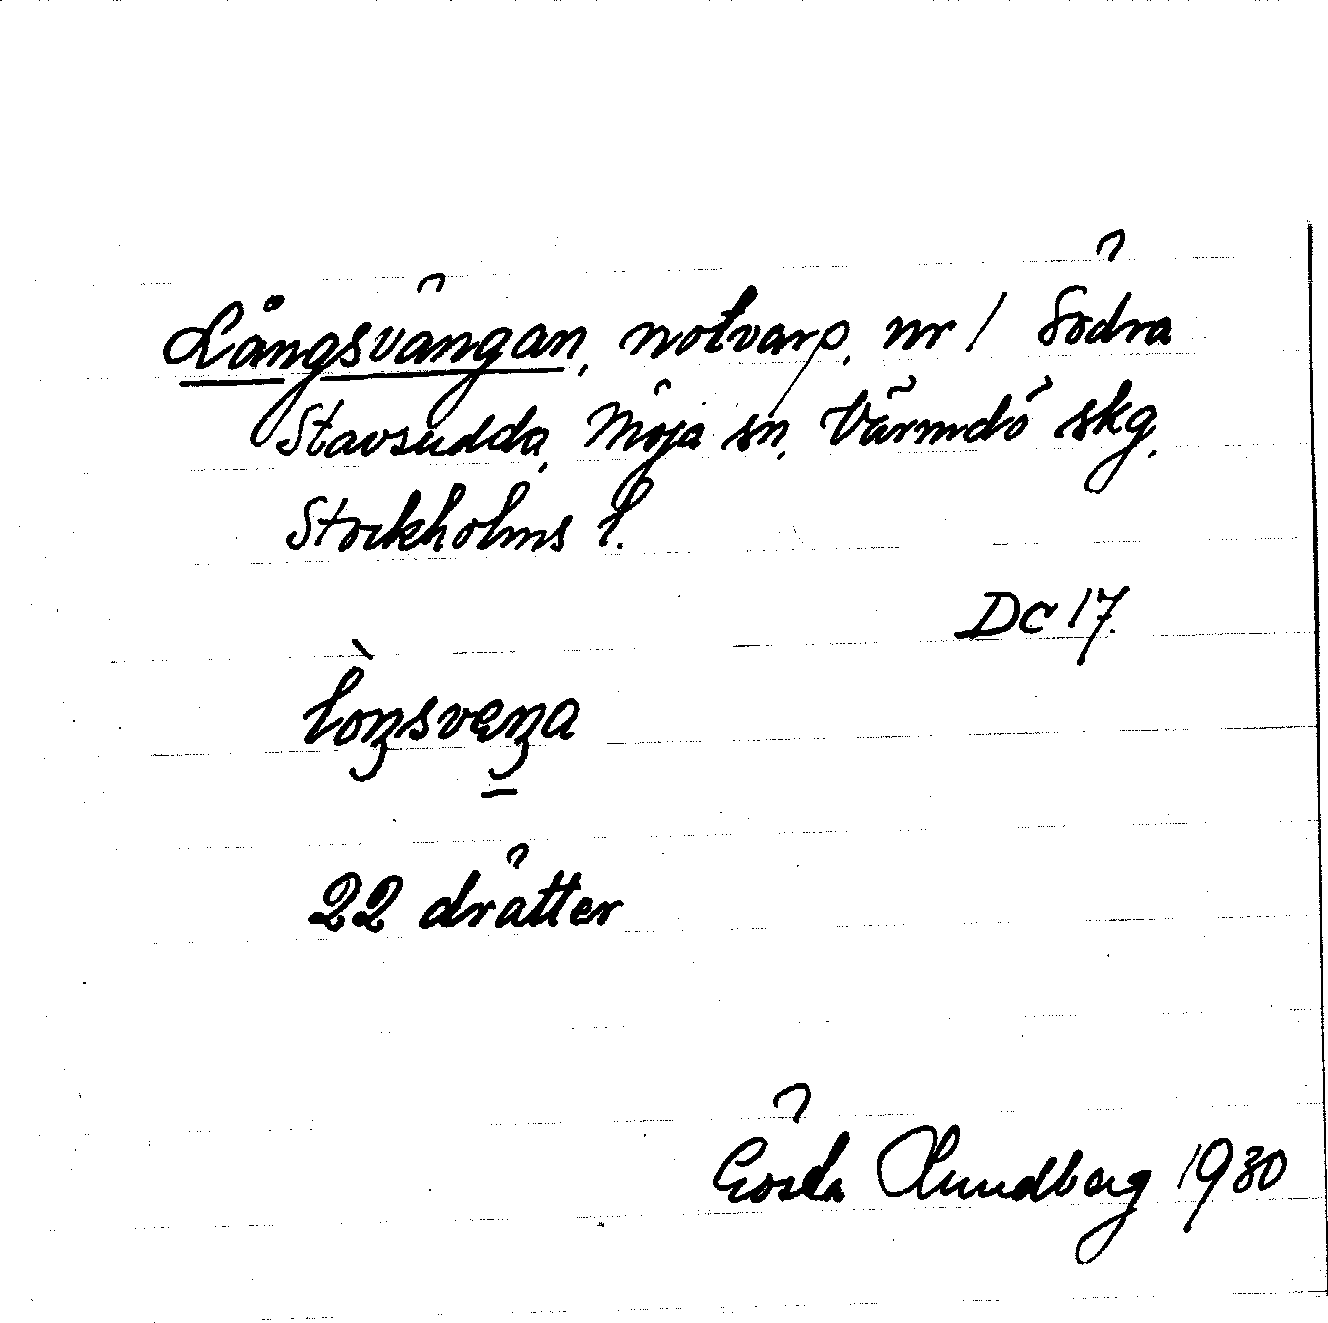 Långsvängan, notvarp, nr 1 Södra
Stavsudda, Möja sn, Värmdö skg,
Stockholms l.
Dc 17.
lòŋsveŋa
22 drätter
Gösta Lundberg 1930